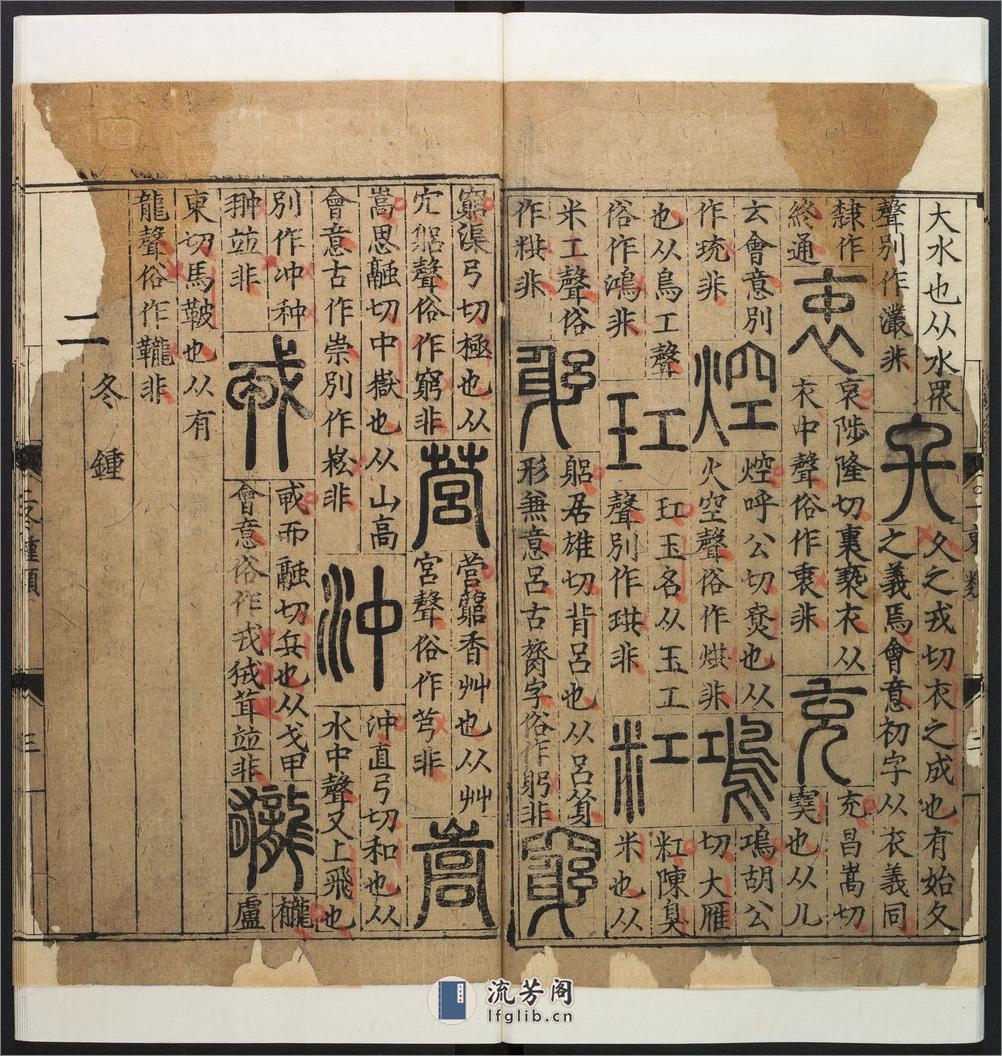 大水也从水眔
聲別作灇非
夂
夂之戎切衣之成也有始夂
之義焉會意初字从衣義同
隸作
終通
衷
衷陟隆切裏褻衣从
衣中聲俗作衷非
充
充昌嵩切
也从儿
玄會意別
作珫非
焢
焢呼公切尞也从
火空聲俗作烘非
鳿
胡公
切大雁
也从鳥工聲
俗作鴻非
玒
玒玉名从玉工
聲別作珙非
粠
陳臭
米也从
米工聲俗
作粠非
躳
躳居雄切背呂也从呂
形兼意呂古膂字俗作躬非
竆
竆渠弓切極也从
穴躳聲俗作窮非
营
营藭香艸也从艸
宮聲俗作芎非
嵩
嵩思融切中嶽也从山高
會意古作崇別作崧非
沖
沖直弓切和也从
水中聲又上飛也
別作冲种
翀並非
戎
而融切兵也从戈甲
會意俗作戎狨茸並非
龓
龓盧
東切馬鞁也从有
龍聲俗作非
二
冬鍾
流芳阁
lfglib.cn